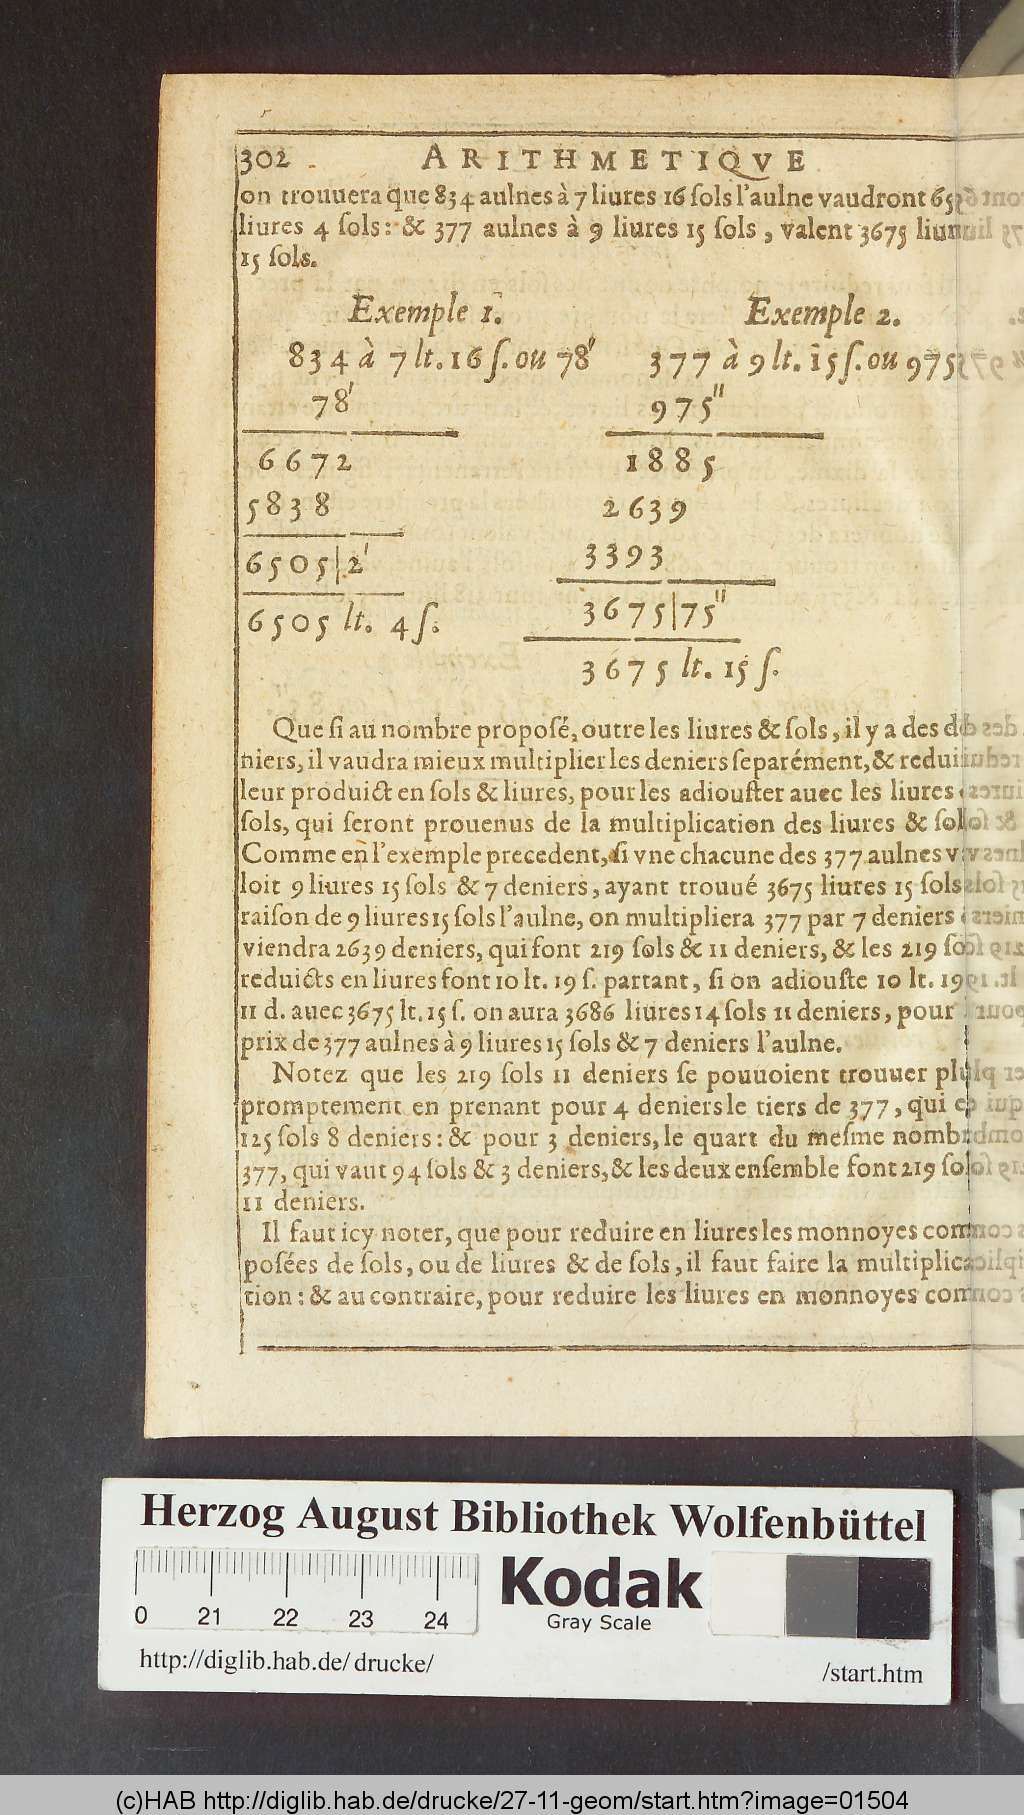 302 ARITHMETIQVE
on trouuera que 834 aulnes à 7 liures 16 ſols l'aulne vaudront
liures 4 ſols: & 377 aulnes à 9 liures 15 ſols, valent 3675
15 ſols.
Exemple 1. Exemple 2.
834 à 7 lt. 16 ſ. ou 78' 377 à 9 lt. 15 ſ. ou 975
78' 975''
6672 1885
5838 2639
6505|2' 3393
6505 lt. 4 ſ. 3675|75''
3675 lt. 15 ſ.
Que ſi au nombre propoſé, outre les liures & ſols, il y a des
niers, il vaudra mieux multiplier les deniers ſeparément, &
leur produict en ſols & liures, pour les adiouſter auec les liures
ſols, qui ſeront prouenus de la multiplication des liures &
Comme en l'exemple precedent, ſi vne chacune des 377 aulnes
loit 9 liures 15 ſols & 7 deniers, ayant trouué 3675 liures 15 ſols
raiſon de 9 liures 15 ſols l'aulne, on multipliera 377 par 7 deniers
viendra 2639 deniers, qui font 219 ſols & 11 deniers, & les 219
reduicts en liures font 10 lt. 19 ſ. partant, ſi on adiouſte 10 lt. 19
11 d. auec 3675 lt. 15 ſ. on aura 3686 liures 14 ſols 11 deniers, pour
prix de 377 aulnes à 9 liures 15 ſols & 7 deniers l'aulne.
Notez que les 219 ſols 11 deniers ſe pouuoient trouuer
promptement en prenant pour 4 deniers le tiers de 377, qui
125 ſols 8 deniers: & pour 3 deniers, le quart du meſme
377, qui vaut 94 ſols & 3 deniers, & les deux enſemble font 219
11 deniers.
Il faut icy noter, que pour reduire en liures les monnoyes com
poſées de ſols, ou de liures & de ſols, il faut faire la multiplica
tion: & au contraire, pour reduire les liures en monnoyes com
Herzog August Bibliothek Wolfenbüttel
0 21 22 23 24
Kodak
Gray Scale
http://diglib.hab.de/drucke/ /start.htm
(c)HAB http://diglib.hab.de/drucke/27-11-geom/start.htm?image=01504